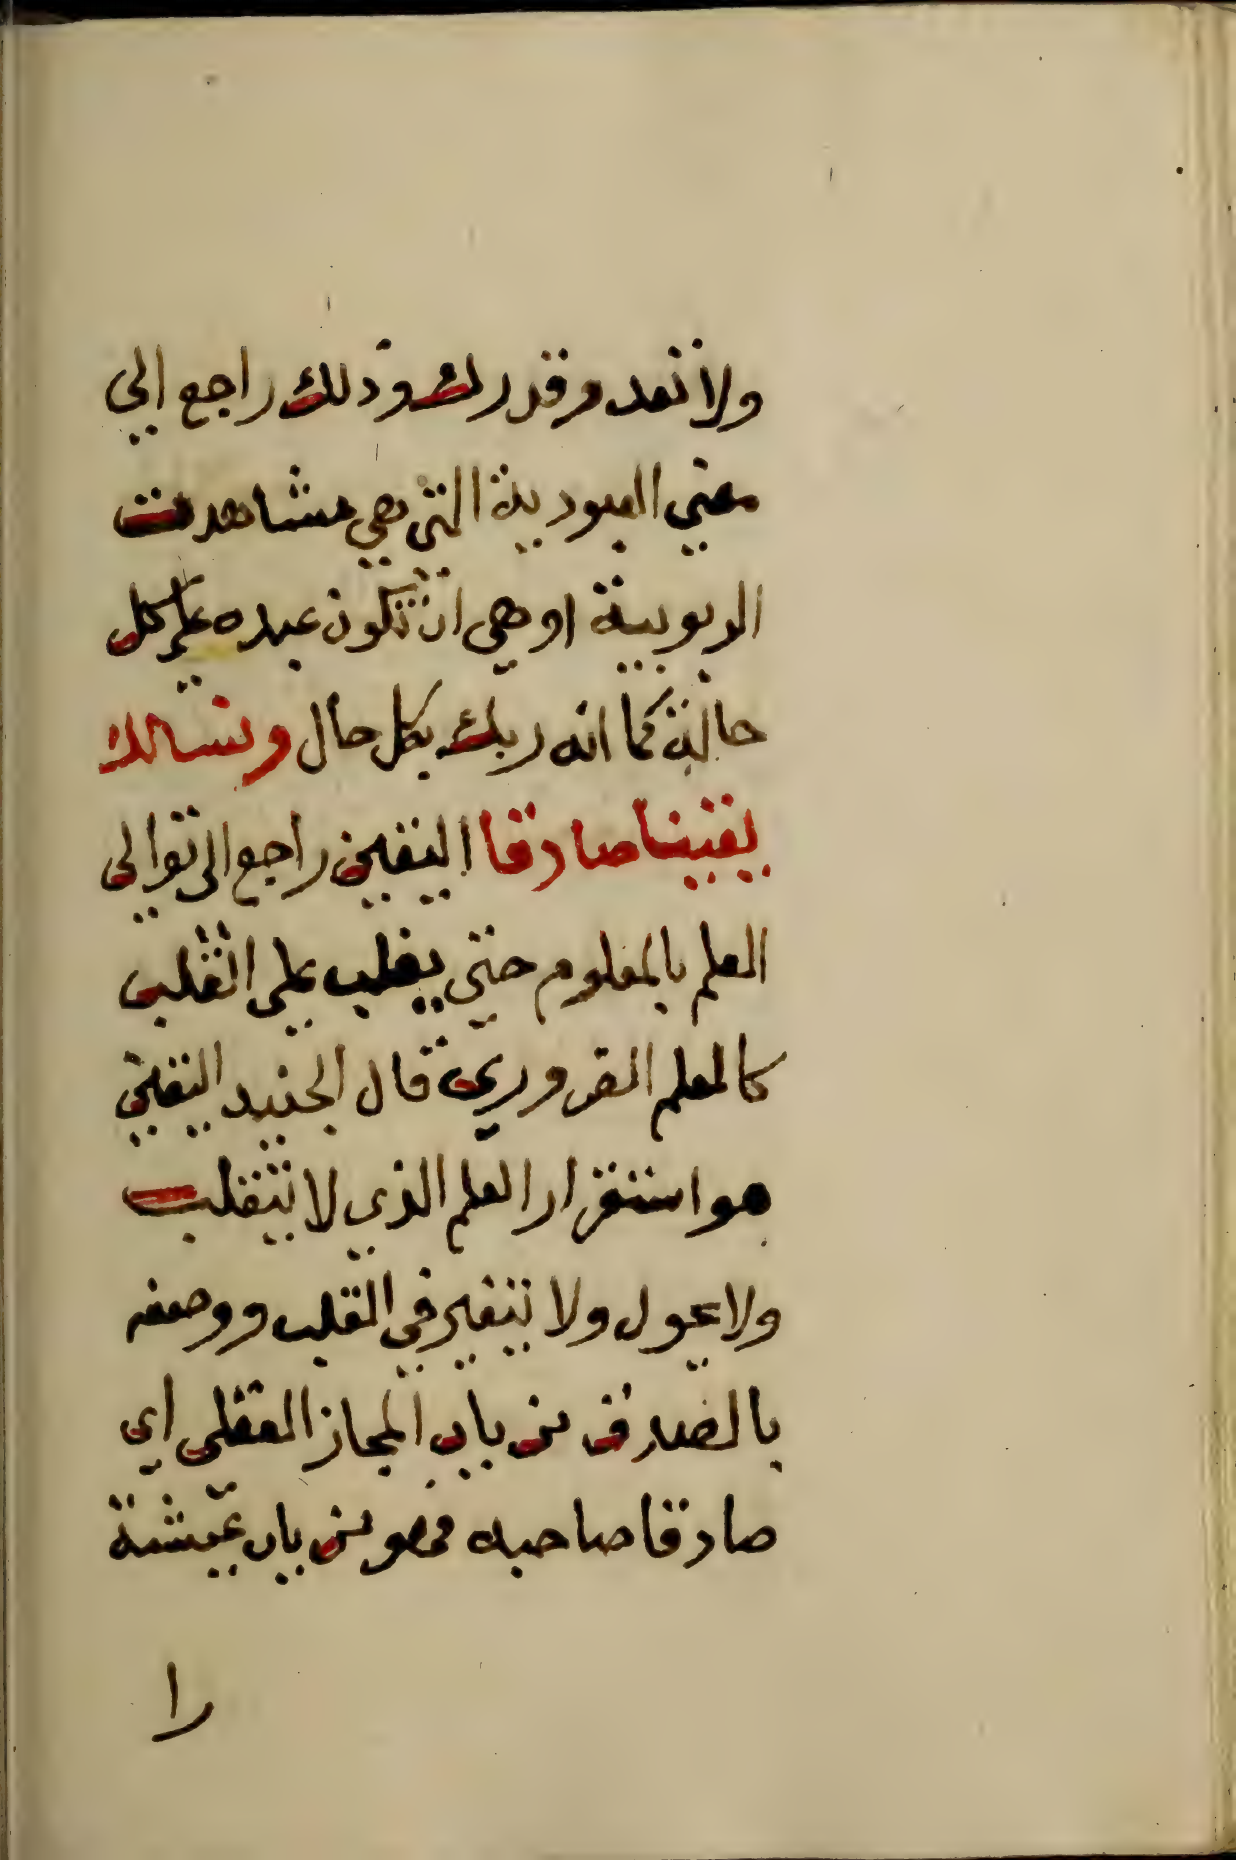 ولا تعد وقدرك وذلك راجع الي
معني العبودية التي هي مشاهدت
الربوبية او هي ان تكون عبده علي كل
حالة كما انه ربك بكل حال ونسالك
يقينا صادقا اليقين راجع الى توالي
العلم بالمعلوم حتي يغلب علي القلب
كالعلم الضروري قال الجنيد اليقين
هو استقرار العلم الذي لا ينقلب
ولا يحول ولا يتغير في القلب ووصفه
بالصدق من باب المجاز العقلي اي
صادقا صاحبه فهو من باب عيشة
را